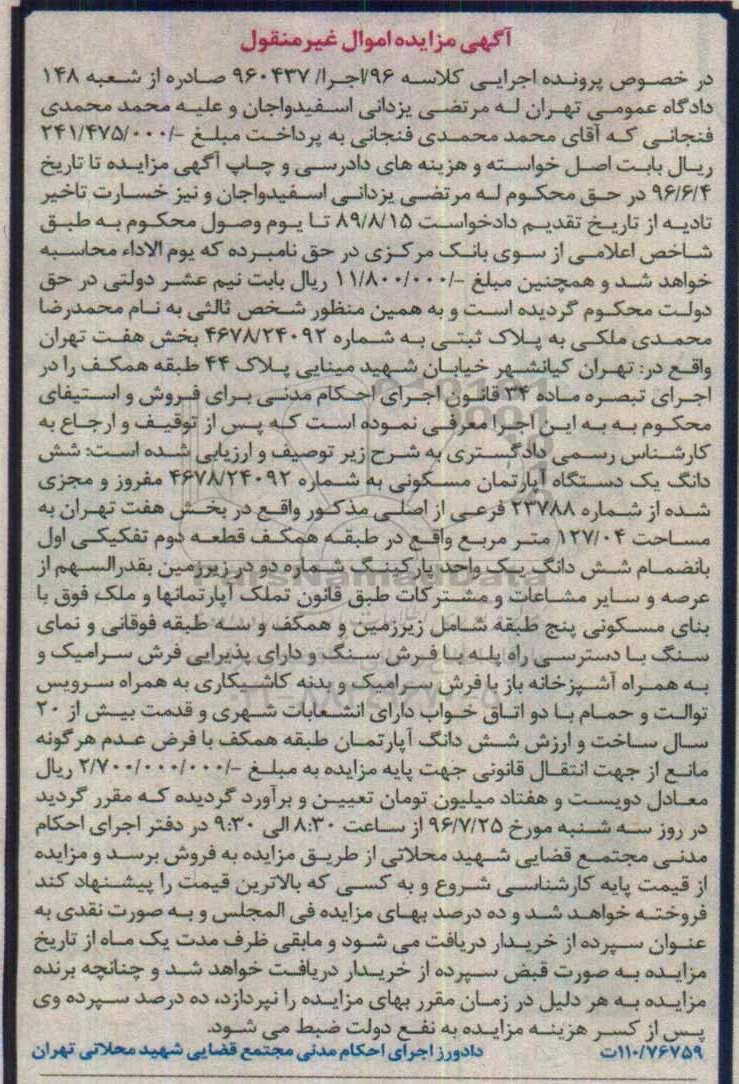 آگهی مزایده اموال غیرمنقول
در خصوص پرونده اجرایی کلاسه ۹۶/اجرا/ ۹۶۰۴۳۷ صادره از شعبه ۱۴۸
دادگاه عمومی تهران له مرتضی یزدانی اسفیدواجان و علیه محمد محمدی
فنجانی که آقای محمد محمدی فنجانی به پرداخت مبلغ -/۲۴۱/۴۷۵/۰۰۰
ریال بابت اصل خواسته و هزینه های دادرسی و چاپ آگهی مزایده تا تاریخ
۹۶/۶/۴ در حق محکوم له مرتضی یزدانی اسفیدواجان و نیز خسارت تاخیر
تادیه از تاریخ تقدیم دادخواست ۸۹/۸/۱۵ تا یوم وصول محکوم به طبق
شاخص اعلامی از سوی بانک مرکزی در حق نامبرده که یوم الاداء محاسبه
خواهد شد و همچنین مبلغ -/۱۱/۸۰۰/۰۰۰ ریال بابت نیم عشر دولتی در حق
دولت محکوم گردیده است و به همین منظور شخص ثالثی به نام محمدرضا
محمدی ملکی به پلاک ثبتی به شماره ۴۶۷۸/۲۴۰۹۲ بخش هفت تهران
واقع در: تهران کیانشهر خیابان شهید مینایی پلاک ۴۴ طبقه همکف را در
اجرای تبصره ماده ۳۴ قانون اجرای احکام مدنی برای فروش و استیفای
محکوم به به این اجرا معرفی نموده است که پس از توقیف و ارجاع به
کارشناس رسمی دادگستری به شرح زیر توصیف و ارزیابی شده است: شش
دانگ یک دستگاه آپارتمان مسکونی به شماره ۴۶۷۸/۲۴۰۹۲ مفروز و مجزی
شده از شماره ۲۳۷۸۸ فرعی از اصلی مذکور واقع در بخش هفت تهران به
مساحت ۱۲۷/۰۴ متر مربع واقع در طبقه همکف قطعه دوم تفکیکی اول
بانضمام شش دانگ یک واحد پارکینگ شماره دو در زیرزمین بقدرالسهم از
عرصه و سایر مشاعات و مشترکات طبق قانون تملک آپارتمانها و ملک فوق با
بنای مسکونی پنج طبقه شامل زیرزمین و همکف و سه طبقه فوقانی و نمای
سنگ با دسترسی راه پله با فرش سنگ و دارای پذیرایی فرش سرامیک و
به همراه آشپزخانه باز با فرش سرامیک و بدنه کاشیکاری به همراه سرویس
توالت و حمام با دو اتاق خواب دارای انشعابات شهری و قدمت بیش از ۲۰
سال ساخت و ارزش شش دانگ آپارتمان طبقه همکف با فرض عدم هر گونه
مانع از جهت انتقال قانونی جهت پایه مزایده به مبلغ -/۲/۷۰۰/۰۰۰/۰۰۰ ریال
معادل دویست و هفتاد میلیون تومان تعیین و برآورد گردیده که مقرر گردید
در روز سه شنبه مورخ ۹۶/۷/۲۵ از ساعت ۸:۳۰ الی ۹:۳۰ در دفتر اجرای احکام
مدنی مجتمع قضایی شهید محلاتی از طریق مزایده به فروش برسد و مزایده
از قیمت پایه کارشناسی شروع و به کسی که بالاترین قیمت را پیشنهاد کند
فروخته خواهد شد و ده درصد بهای مزایده فی المجلس و به صورت نقدی به
عنوان سپرده از خریدار دریافت می شود و مابقی ظرف مدت یک ماه از تاریخ
مزایده به صورت قبض سپرده از خریدار دریافت خواهد شد و چنانچه برنده
مزایده به هر دلیل در زمان مقرر بهای مزایده را نپردازد، ده درصد سپرده وی
پس از کسر هزینه مزایده به نفع دولت ضبط می شود.
۱۱۰/۷۶۷۵۹ت دادورز اجرای احکام مدنی مجتمع قضایی شهید محلاتی تهران
ParsNamadData